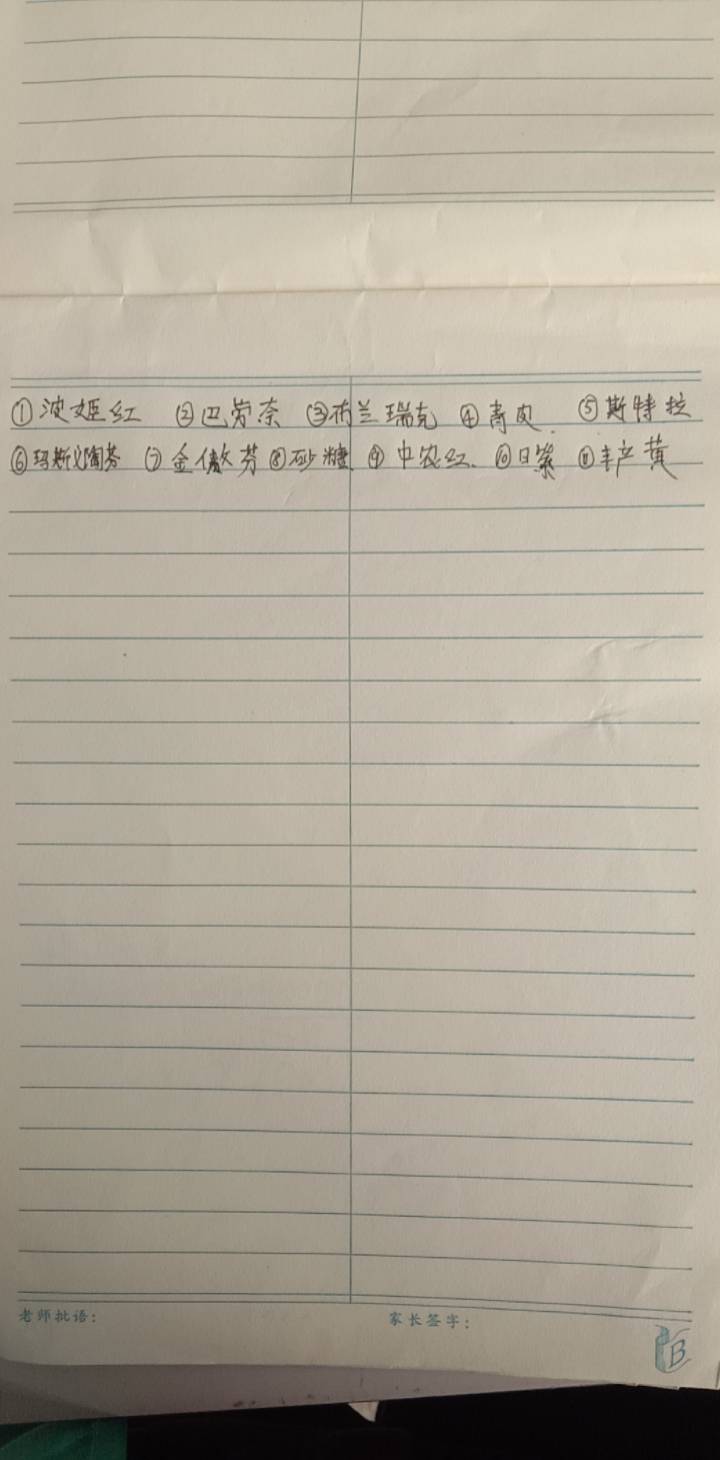 ①波姬红 ②巴劳奈 ③布兰瑞克 ④青皮 ⑤斯特拉
⑥玛斯义陶芬 ⑦金傲芬 ⑧砂糖 ⑨中农红 ⑩日紫 ⑪丰产黄
老师批语: 家长签字:
B